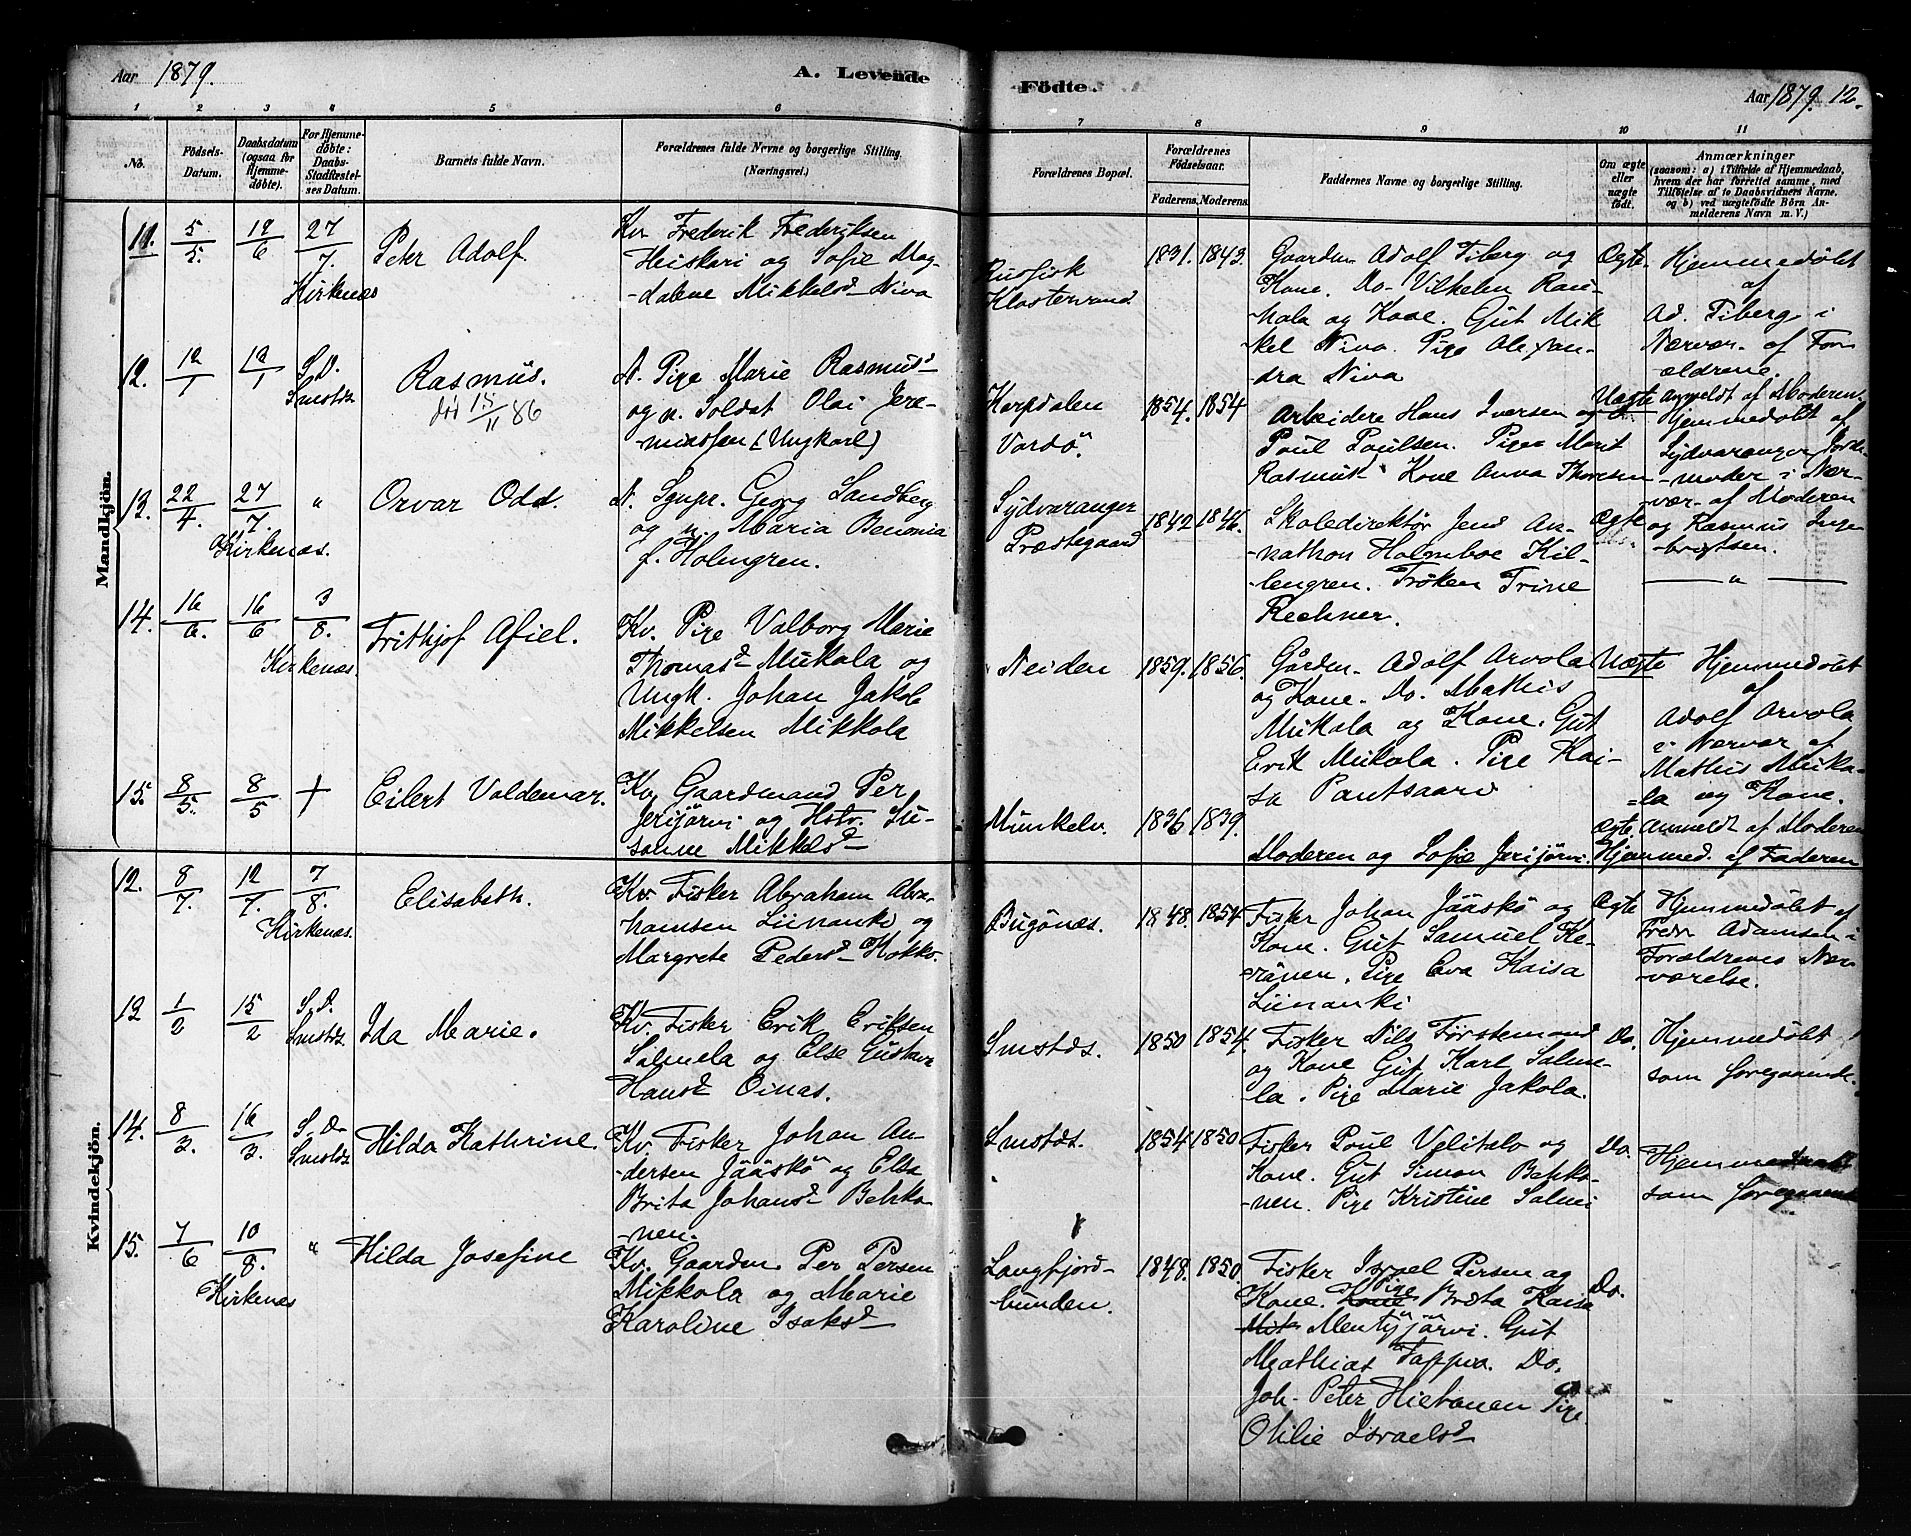 Aar 1879.
A. Levende
Födte.
Aar 1879. 12.
1 2 3 4 5 6 7 8 9 10 11
No.
Födsels-
Datum.
Daabsdatum
(ogsaa for
Hjemme-
døbte).
For Hjemme-
døbte:
Daabs-
Stadfæstel-
ses Datum.
Barnets fulde Navn.
Forældrenes fulde Nevne og borgerlige Stilling.
(Næringsvei.)
Forældrenes Bopæl.
Forældrenes
Födselsaar.
Faderens. Moderens.
Faddernes Navne og borgerlige Stilling.
Om ægte
eller
uægte
födt.
Anmærkninger
(saasom: a) i Tilfælde af Hjemmedaab,
hvem der har forrettet samme, med
Tilföielse af to Daabsvidners Navne.
og b) ved uægtefödte Börn An-
melderens Navn m. V.)
Mandkjön.
11. 5/5. 19/6 27/7. Kirkenæs
Peter Adolf
Kv. Frederik Frederiksen
Heiskari og Sofie Mag-
-dalene Mikkelsd Niva
Russisk
Klostervand
1831. 1843.
Gaardm. Adolf Fiberg og
Kone. Do. Vilhelm Rau-
hala og Kone. Gut Mik
kel Niva. Pige Alexan-
dra Niva
Ægte
Hjemmedøbt
af
Ad. Fiberg i
Nærvær. af For
ældrene.
12. 12/1 12/1 S.D. Smstds
Rasmus.
död 15/11 86
N. Pige Marie Rasmusd
og n. Soldat Olai Jere-
miassen (Ungkarl)
Karpdalen
Vardö.
1854. 1854
Arbeidere Hans Iversen og
Poul Poulsen. Pige Marit
Rasmusd Kone Anna Thoresen
Uægte
Anmeldt af Moderen.
Hjemmedøbt af
Sydvaranger Jorde-
-moder i Nær-
vær. af Moderen
og Rasmus Inge
brigtsen.
13. 22/4. 27/7. "
Kirkenæs.
Orvar Odd.
N. Sgnpr. Georg Sandberg
og n. Maria Benonia
f. Holmgren.
Sydvaranger
Præstegaard
1842 1846.
Skoledirektør Jens An-
-nathon Holmboe Kil-
-lengren. Frøken Trine
Rechner.
Ægte
— " —
14. 16/6. 16/6 3/8.
Kirkenæs.
Frithjof Afiel.
Kv. Pige Valborg Marie
Thomasd Mukola og
Ungk. Johan Jakob
Mikkelsen Mikkola
Neiden
1859. 1856.
Gårdm. Adolf Arvola
og Kone. Do. Mathis
Mukola og Kone. Gut
Erik Mukola. Pige Kai-
sa Pantsaari
Uægte
Hjemmedøbt
af
Adolf Arvola
i Nærvær af
Mathis Muko-
=la og Kone.
15. 8/5. 8/5 +
Eilert Valdemar.
Kv. Gaardmand Per
Jerijärvi og Hstr. Su-
sanne Mikkelsd
Munkelv.
1836 1839.
Moderen og Sofie Jerijärvi.
Ægte.
Anmeldt af Moderen
Hjemmed. af Faderen
Kvindekjön.
12. 8/7. 12/7. 7/8.
Kirkenæs.
Elisabeth.
Kv. Fisker Abraham Abra-
hamsen Liinanki og
Margrete Pedersd Kokko.
Bugönæs.
1848. 1854.
Fisker Johan Jääskö og
Kone. Gut Samuel Ke-
ränen. Pige Eva Kaisa
Liinanki
Ægte
Hjemmedøbt af
Fredr. Adamsen i
Forældrenes Nær-
værelse.
13 1/2 15/2 S.D. Smstds
Ida Marie.
Kv. Fisker Erik Eriksen
Salmela og Else Gustava
Hansd Oinas.
Smstds.
1850 1854.
Fisker Nils Førstemand
og Kone Gut Karl Salme-
la. Pige Marie Jakola.
Do.
Hjemmedøbt
som foregaaende.
14. 8/3. 16/3. S.D. Smstds
Hilda Kathrine.
Kv. Fisker Johan An-
-dersen Jääskö og Elsa
Brita Johansd Behko-
-nen.
Smstds.
1854. 1850
Fisker Poul Velitalo og
Kone. Gut Simon Behko-
nen. Pige Kristine Salmi
Do.
som foregaaende
15. 7/6 10/8. "
Kirkenæs
Hilda Josefine
Kv. Gaardm. Per Persen
Mikkola og Marie
Karoline Isaksd
Langfjord-
-bunden.
1848. 1850.
Fisker Israel Persen og
Kone. Pige Brita Kaisa
Mentyjärvi. Gut
Mathias Tappio. Do.
Joh. Peter Hietanen Pige
Otilie Israelsd
Do.